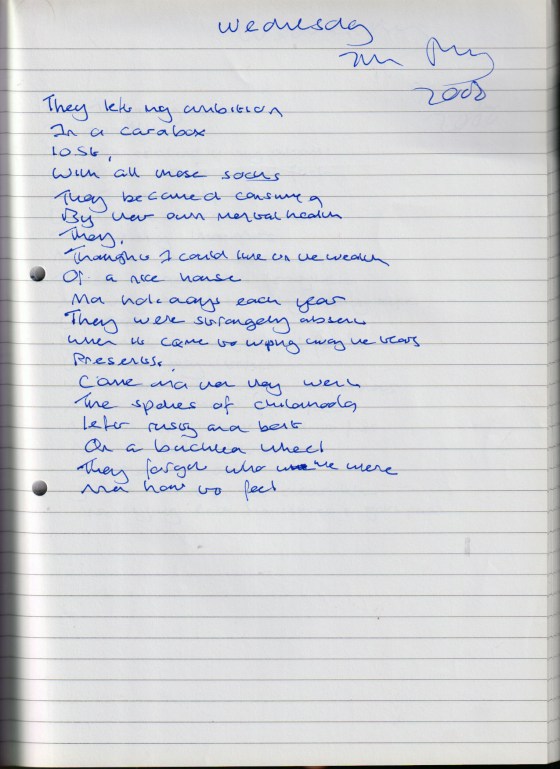 Wednesday
7th May
2008
They left my ambition
In a cardbox
lost,
With all those socks
They became consumed
By their own mental health
They,
Thought I could live on the wealth
Of a nice house
And holidays each year
They were strangely absent
When it came to wiping away the tears
Presents,
Came and then they went
The spokes of childhood
Left rusty and bent
On a buckled wheel
They forgot who we were
And how to feel